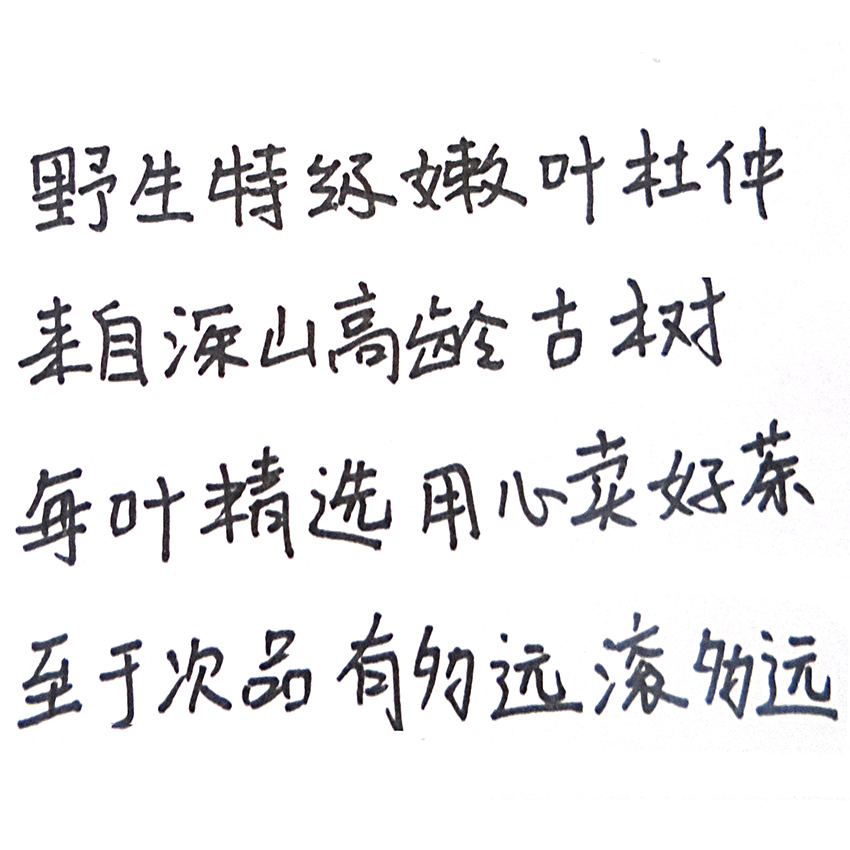 野生特级嫩叶杜仲
来自深山高龄古树
每叶精选用心卖好茶
至于次品有多远滚多远